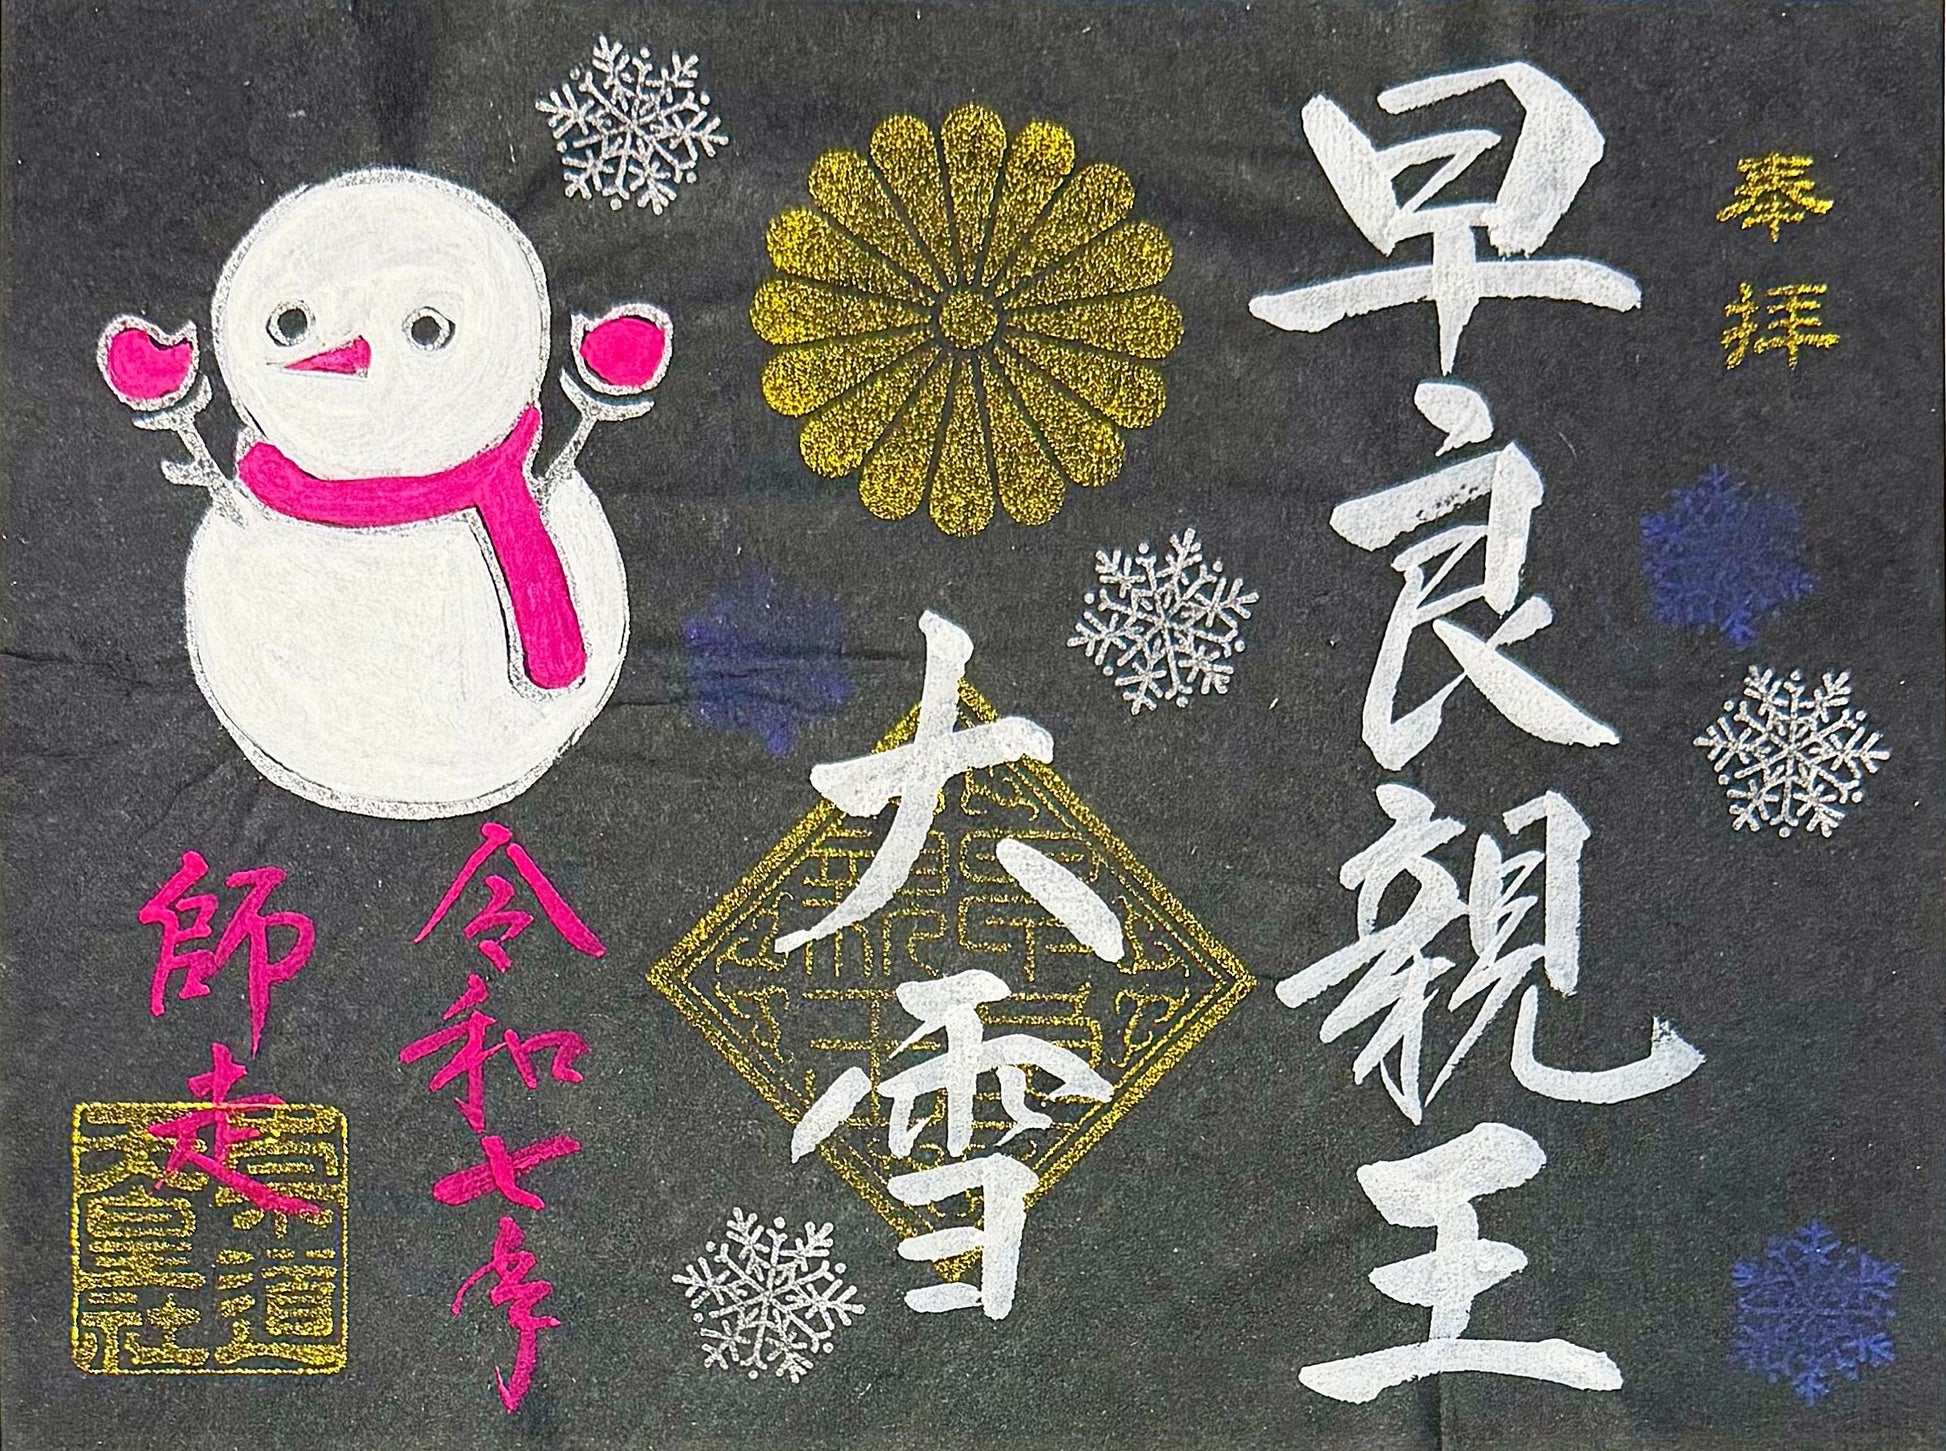 奉拝
早良親王
大雪
令和七年
師走
崇道
天皇社